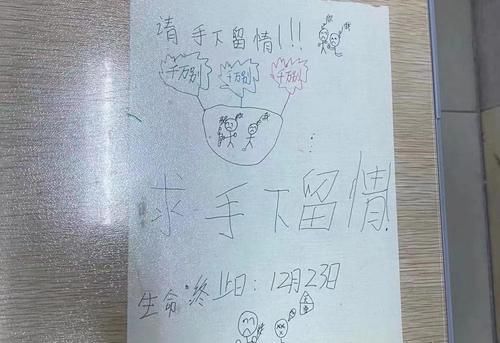 请手下留情!!!
千万别 千万别 千万别
求手下留情!
生命终止日:12月23日